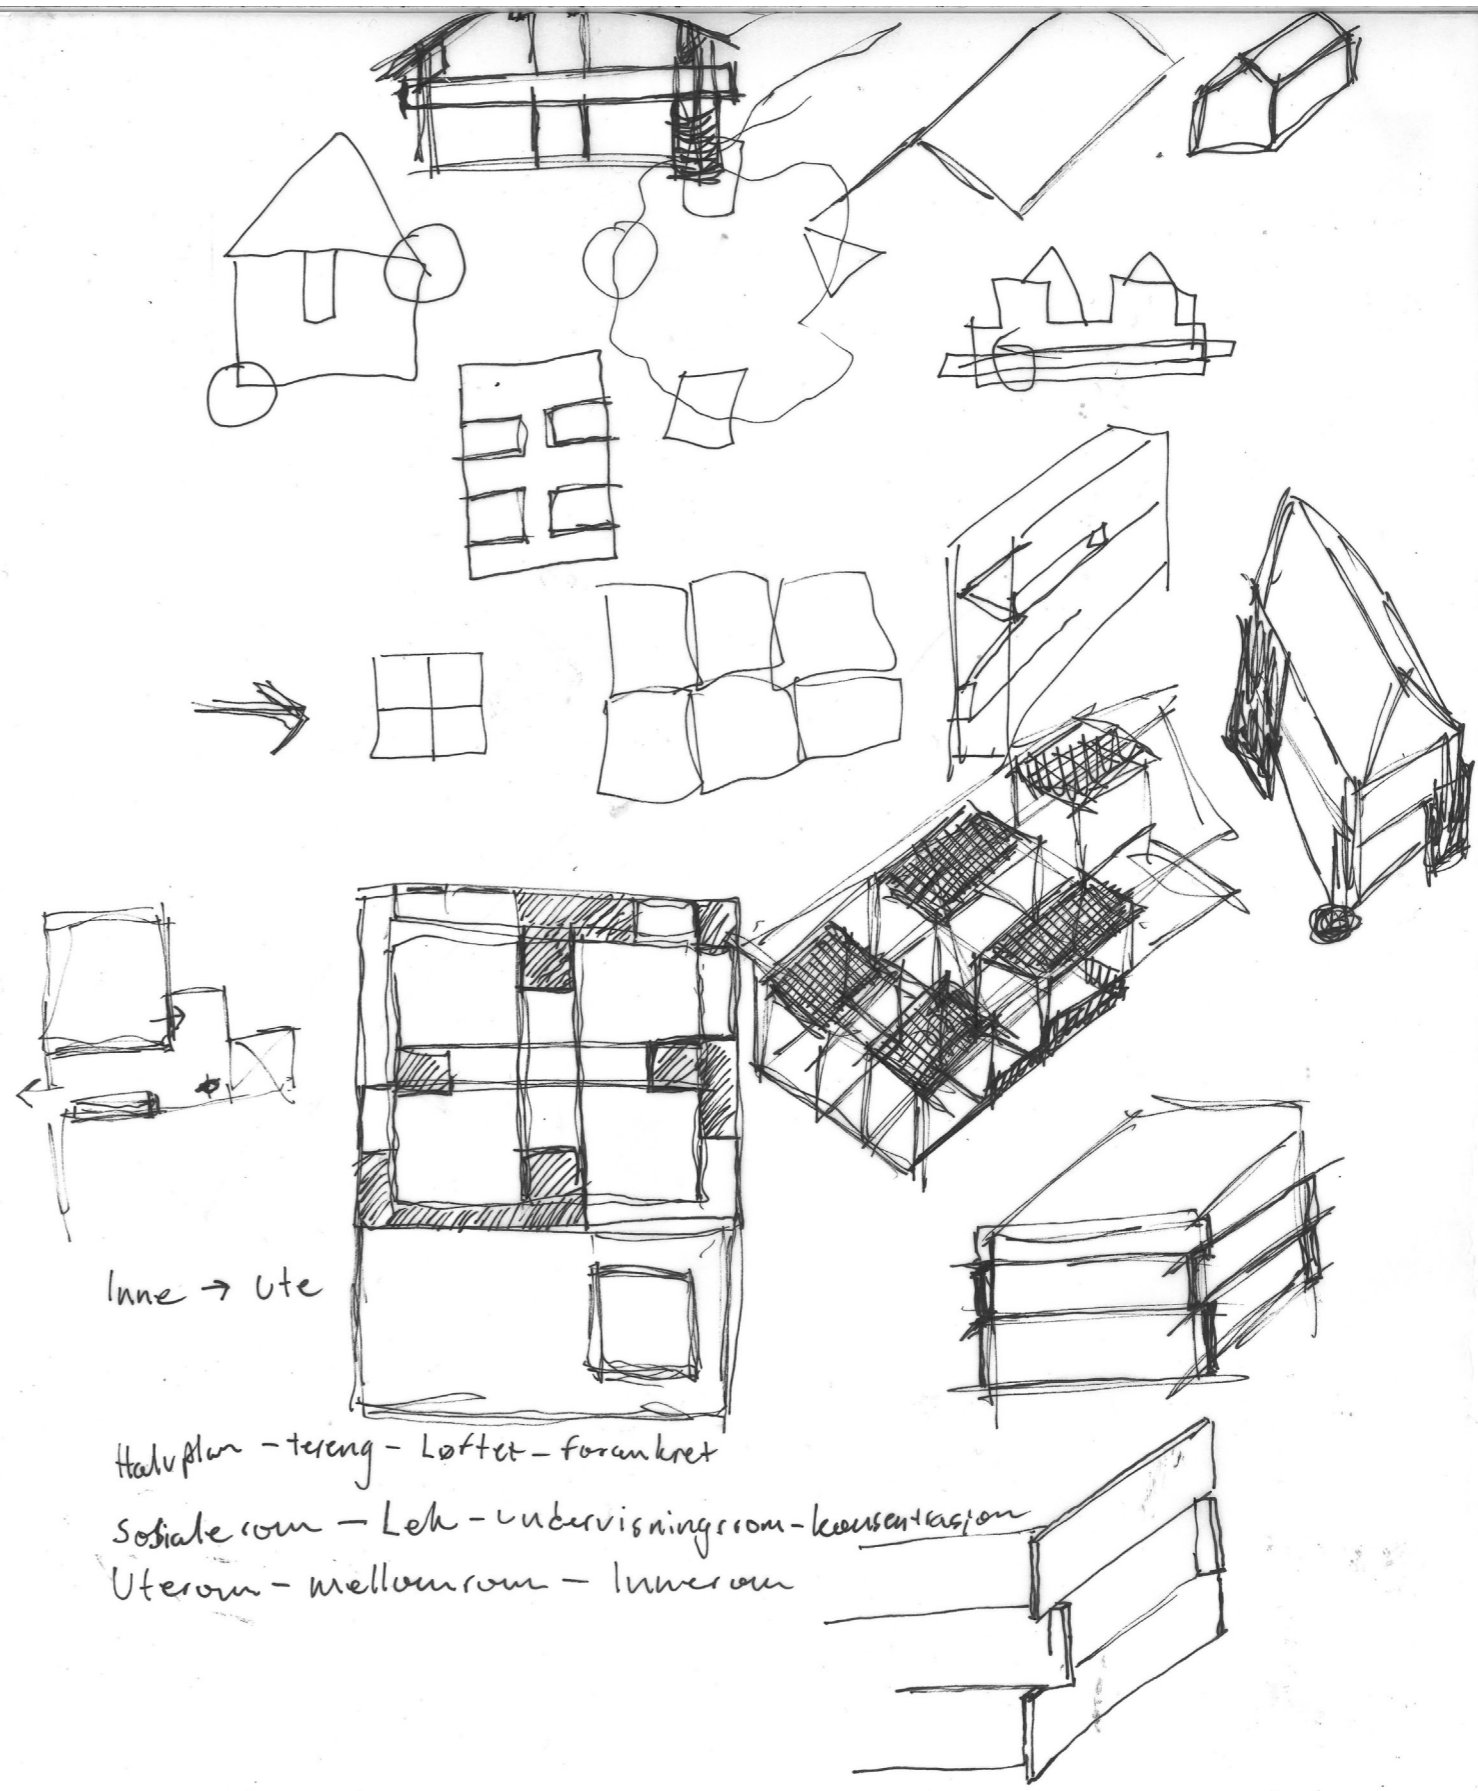 Inne → Ute
Halvplan - tereng - Løftet - forankret
Sosiale rom - Lek - undervisningsrom - konsentrasjon
Uterom - mellomrom - Innerom